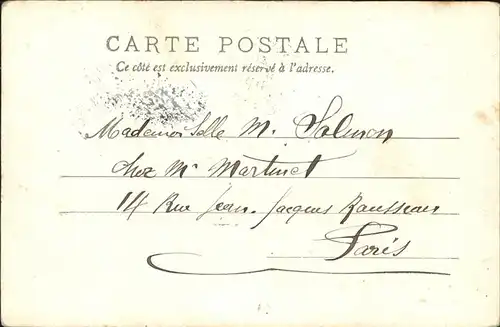 CARTE POSTALE
Ce côté est exclusivement réservé à l'adresse.
Mademoiselle M. Salmon
Chez Mr Martinet
14 Rue Jean-Jacques Rousseau
Paris